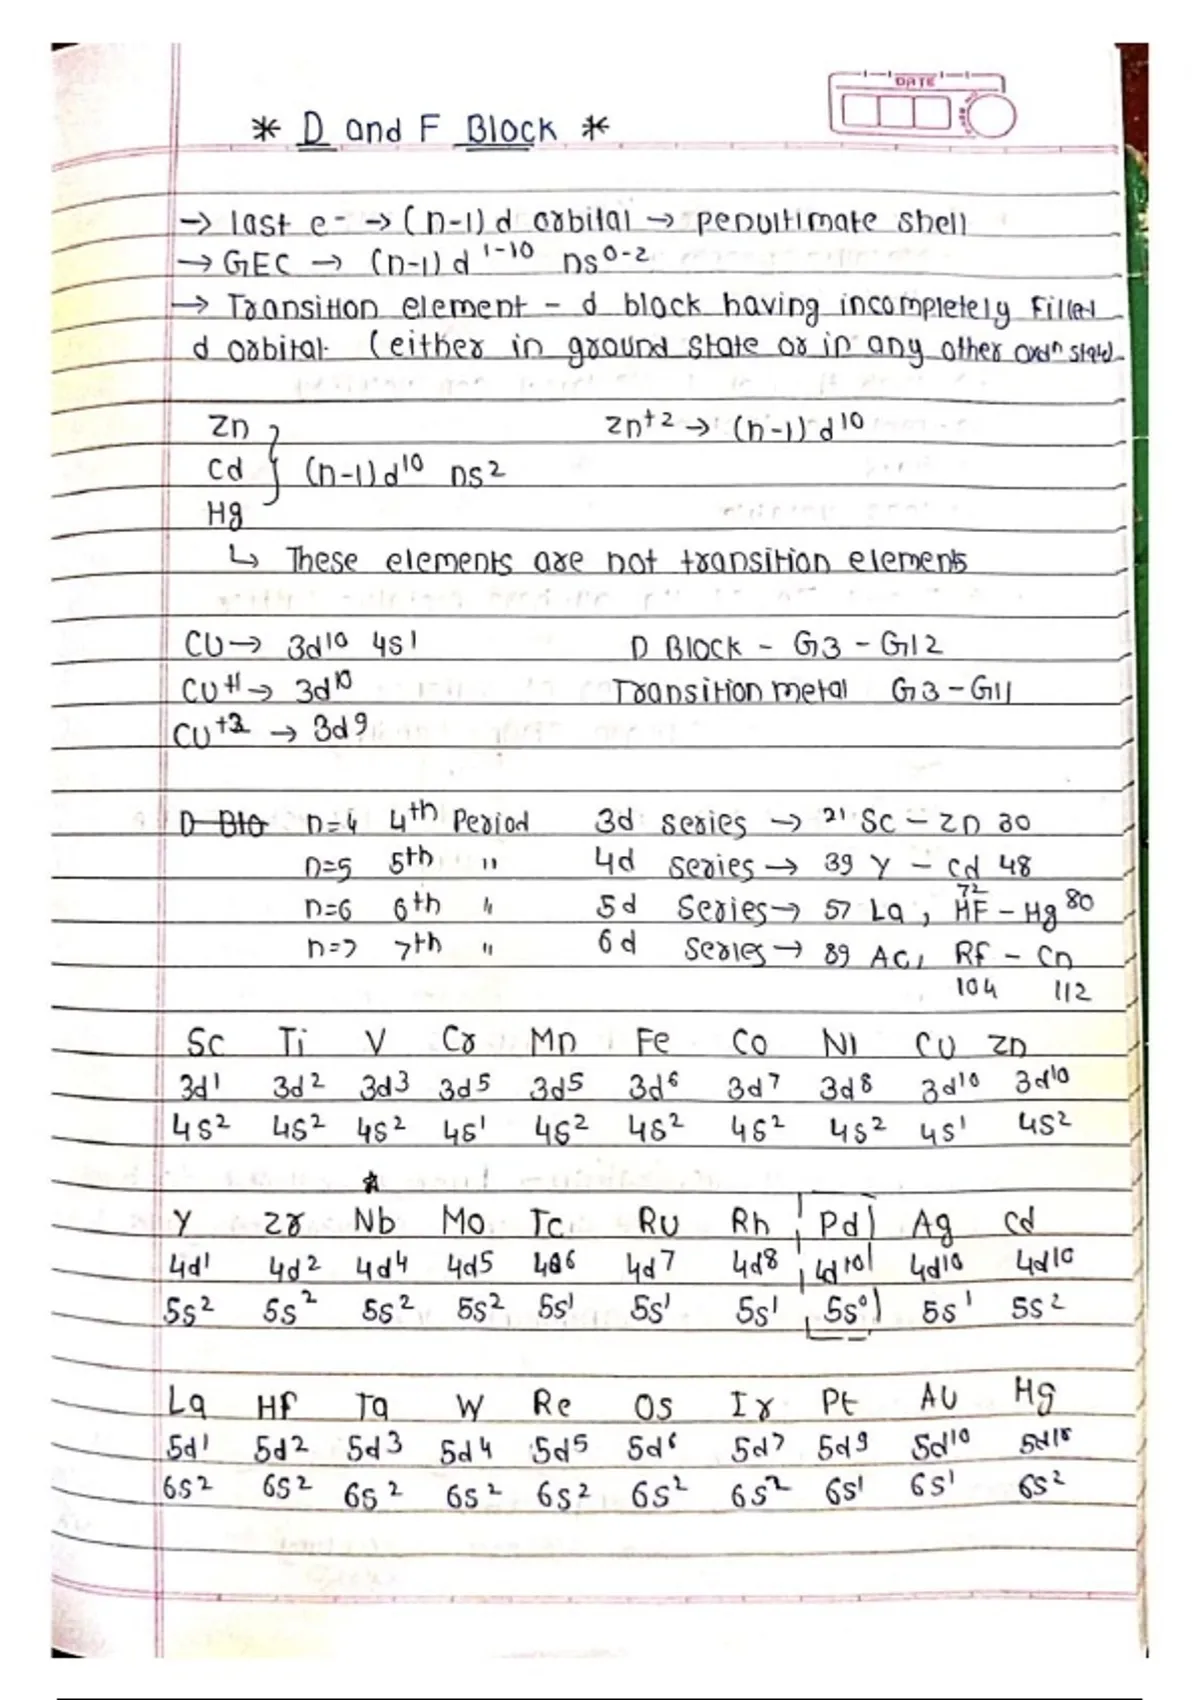 DATE
* D and F Block *
→ last e- → (n-1) d orbital → penultimate shell
→ GEC → (n-1) d 1-10 ns 0-2
→ Transition element - d block having incompletely Filled
d orbital (either in ground state or in any other oxdn state)
Zn
Zn+2 → (n-1) d10
Cd } (n-1)d10 ns2
Hg
↳ These elements are not transition elements
CU → 3d10 4s1 D Block - G3 - G12
CU+1 → 3d10 Transition metal G3 - G11
CU → 3d9
D Blo n=4 4th Period 3d series → 21 Sc - Zn 30
n=5 5th " 4d series → 39 Y - Cd 48
n=6 6th " 5d Series → 57 La, 72 HF - Hg 80
n=7 7th " 6d Series → 89 Ac, Rf - Cn
104 112
Sc Ti V Cr Mn Fe Co Ni CU Zn
3d1 3d2 3d3 3d5 3d5 3d6 3d7 3d8 3d10 3d10
4s2 4s2 4s2 4s1 4s2 4s2 4s2 4s2 4s1 4s2
☆
Y Zr Nb Mo Tc RU Rh Pd Ag Cd
4d1 4d2 4d4 4d5 4d6 4d7 4d8 4d10 4d10 4d10
5s2 5s2 5s2 5s2 5s1 5s1 5s1 5s0 5s1 5s2
La Hf Ta W Re Os Ir Pt AU Hg
5d1 5d2 5d3 5d4 5d5 5d6 5d7 5d9 5d10 5d10
6s2 6s2 6s2 6s2 6s2 6s2 6s2 6s1 6s1 6s2